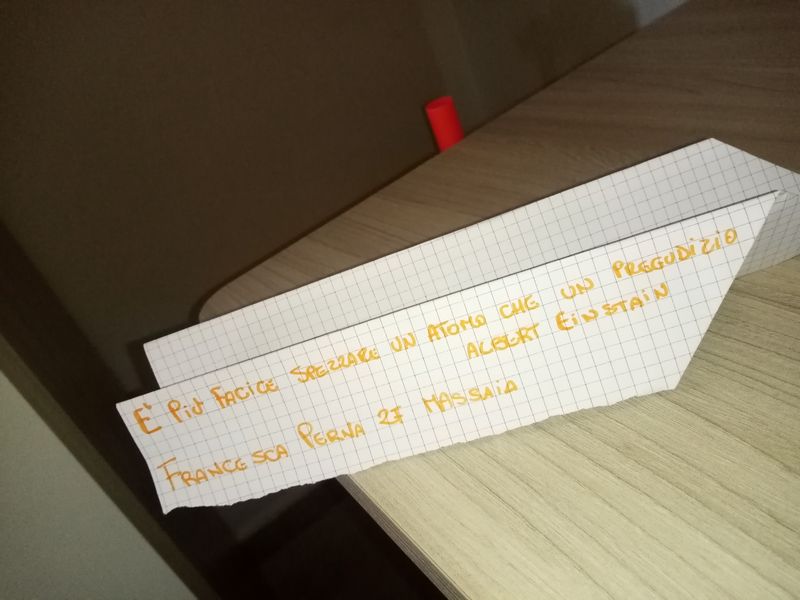 È PIÙ FACILE SPEZZARE UN ATOMO CHE UN PREGUDIZIO
ALBERT EINSTAIN
FRANCESCA PERNA 2F MASSAIA